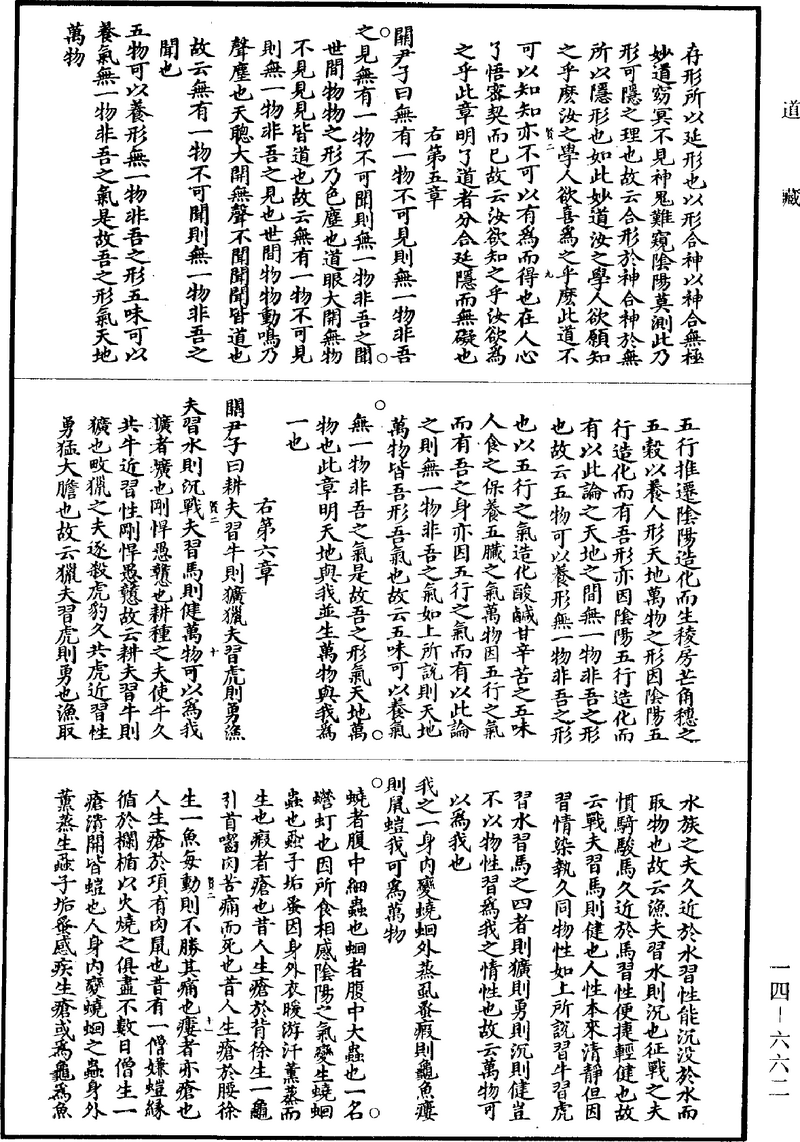 道藏
存形所以延形也以形合神以神合無極
妙道窈冥不見神鬼難窺陰陽莫測此乃
形可隱之理也故云合形於神合神於無
所以隱形也如此妙道汝之學人欲願知
之乎麼汝之學人欲喜為之乎麼此道不
可以知知亦不可以有為而得也在人心
了悟密契而已故云汝欲知之乎汝欲為
之乎此章明了道者分合延隱而無礙也
右第五章
關尹子曰無有一物不可見則無一物非吾
之見無有一物不可聞則無一物非吾之聞
世間物物之形乃色塵也道眼大開無物
不見見見皆道也故云無有一物不可見
則無一物非吾之見也世間物物動鳴乃
聲塵也天聰大開無聲不聞聞聞皆道也
故云無有一物不可聞則無一物非吾之
聞也
五物可以養形無一物非吾之形五味可以
養氣無一物非吾之氣是故吾之形氣天地
萬物
五行推遷陰陽造化而生稜房芒角穗之
五穀以養人形天地萬物之形因陰陽五
行造化而有吾形亦因陰陽五行造化而
有以此論之天地之間無一物非吾之形
也故云五物可以養形無一物非吾之形
也以五行之氣造化酸鹹甘辛苦之五味
人食之保養五臟之氣萬物因五行之氣
而有吾之身亦因五行之氣而有以此論
之則無一物非吾之氣如上所說則天地
萬物皆吾形吾氣也故云五味可以養氣
無一物非吾之氣是故吾之形氣天地萬
物也此章明天地與我並生萬物與我為
一也
右第六章
關尹子曰耕夫習牛則獷獵夫習虎則勇漁
夫習水則沉戰夫習馬則健萬物可以為我
獷者獷也剛悍愚戇也耕種之夫使牛久
共牛近習性剛悍愚戇故云耕夫習牛則
獷也畋獵之夫逐殺虎豹久共虎近習性
勇猛大膽也故云獵夫習虎則勇也漁取
水族之夫久近於水習性能沉没於水而
取物也故云漁夫習水則沉也征戰之夫
慣騎駿馬久近於馬習性便捷輕健也故
云戰夫習馬則健也人性本來清靜但因
習情染執久同物性如上所說習牛習虎
習水習馬之四者則獷則勇則沉則健豈
不以物性習為我之情性也故云萬物可
以為我也
我之一身内變蟯蛔外蒸虱蚤瘕則龜魚瘻
則鼠螘我可為萬物
蟯者腹中細蟲也蛔者腹中大蟲也一名
蟧虰也因所食相感陰陽之氣變生蟯蛔
蟲也蝨子垢蚤因身外衣暖游汗薰蒸而
生也瘕者瘡也昔人生瘡於背徐生一龜
引首嚙肉苦痛而死也昔人生瘡於腰徐
生一魚每動則不勝其痛也瘻者亦瘡也
人生瘡於項有肉鼠也昔有一僧嫌螘緣
循於欄楯以火燒之俱盡不數日僧生一
瘡清開皆螘也人身内變蟯蛔之蟲身外
薰蒸生蝨子垢蚤感疾生瘡或為龜為魚
一四－六六二